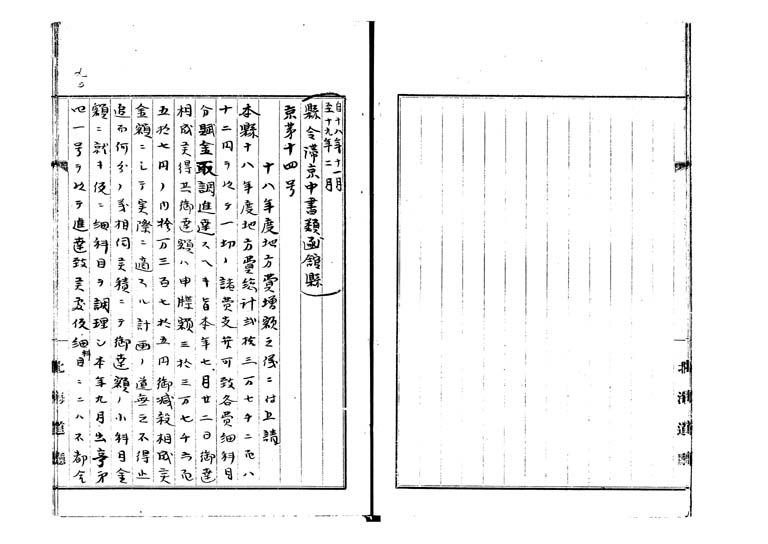 自十八年十一月
至十九年二月
縣令滞京中書類函館縣
京第十四号
十八年度地方費増額之儀ニ付上請
本縣十八年度地方費総計弐拾三万七千二百八
十二円ヲ以テ一切ノ諸費支弁可致各費細科目
分賦金取調進達スヘキ旨本年七月廿二日御達
相成候得共御達額ハ申牒額三拾三万七千六百
五拾七円ノ内拾万三百七拾五円御減殺相成候
金額ニシテ実際ニ適スル計画ノ道無之不得止
追而何分ノ義相伺候積ニテ御達額ノ小科目金
額ニ就キ仮ニ細科目ヲ調理シ本年九月出享第
四一号ヲ以テ進達致候処仮細科目ニニハ不都合
北海道廳
北海道廳